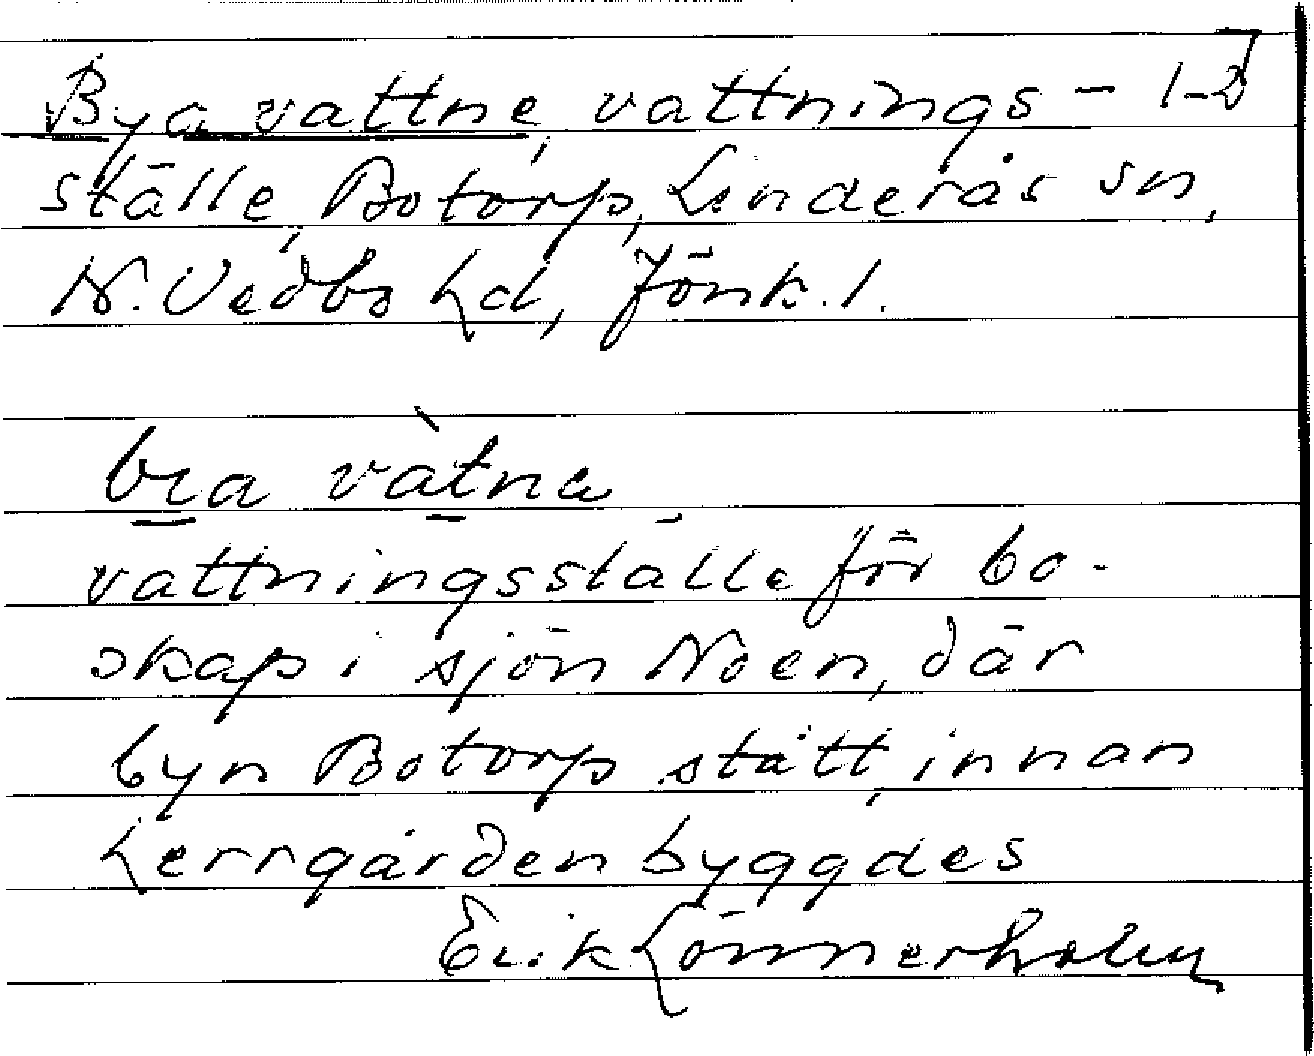 Byavattne, vattnings- 1-2
ställe, Botorp, Linderås sn,
N. Vedbo hd, Jönk. l.
vattningsställe för bo-
skap i sjön Noen, där
byn Botorp stått, innan
herrgården byggdes
Erik Lönnerholm